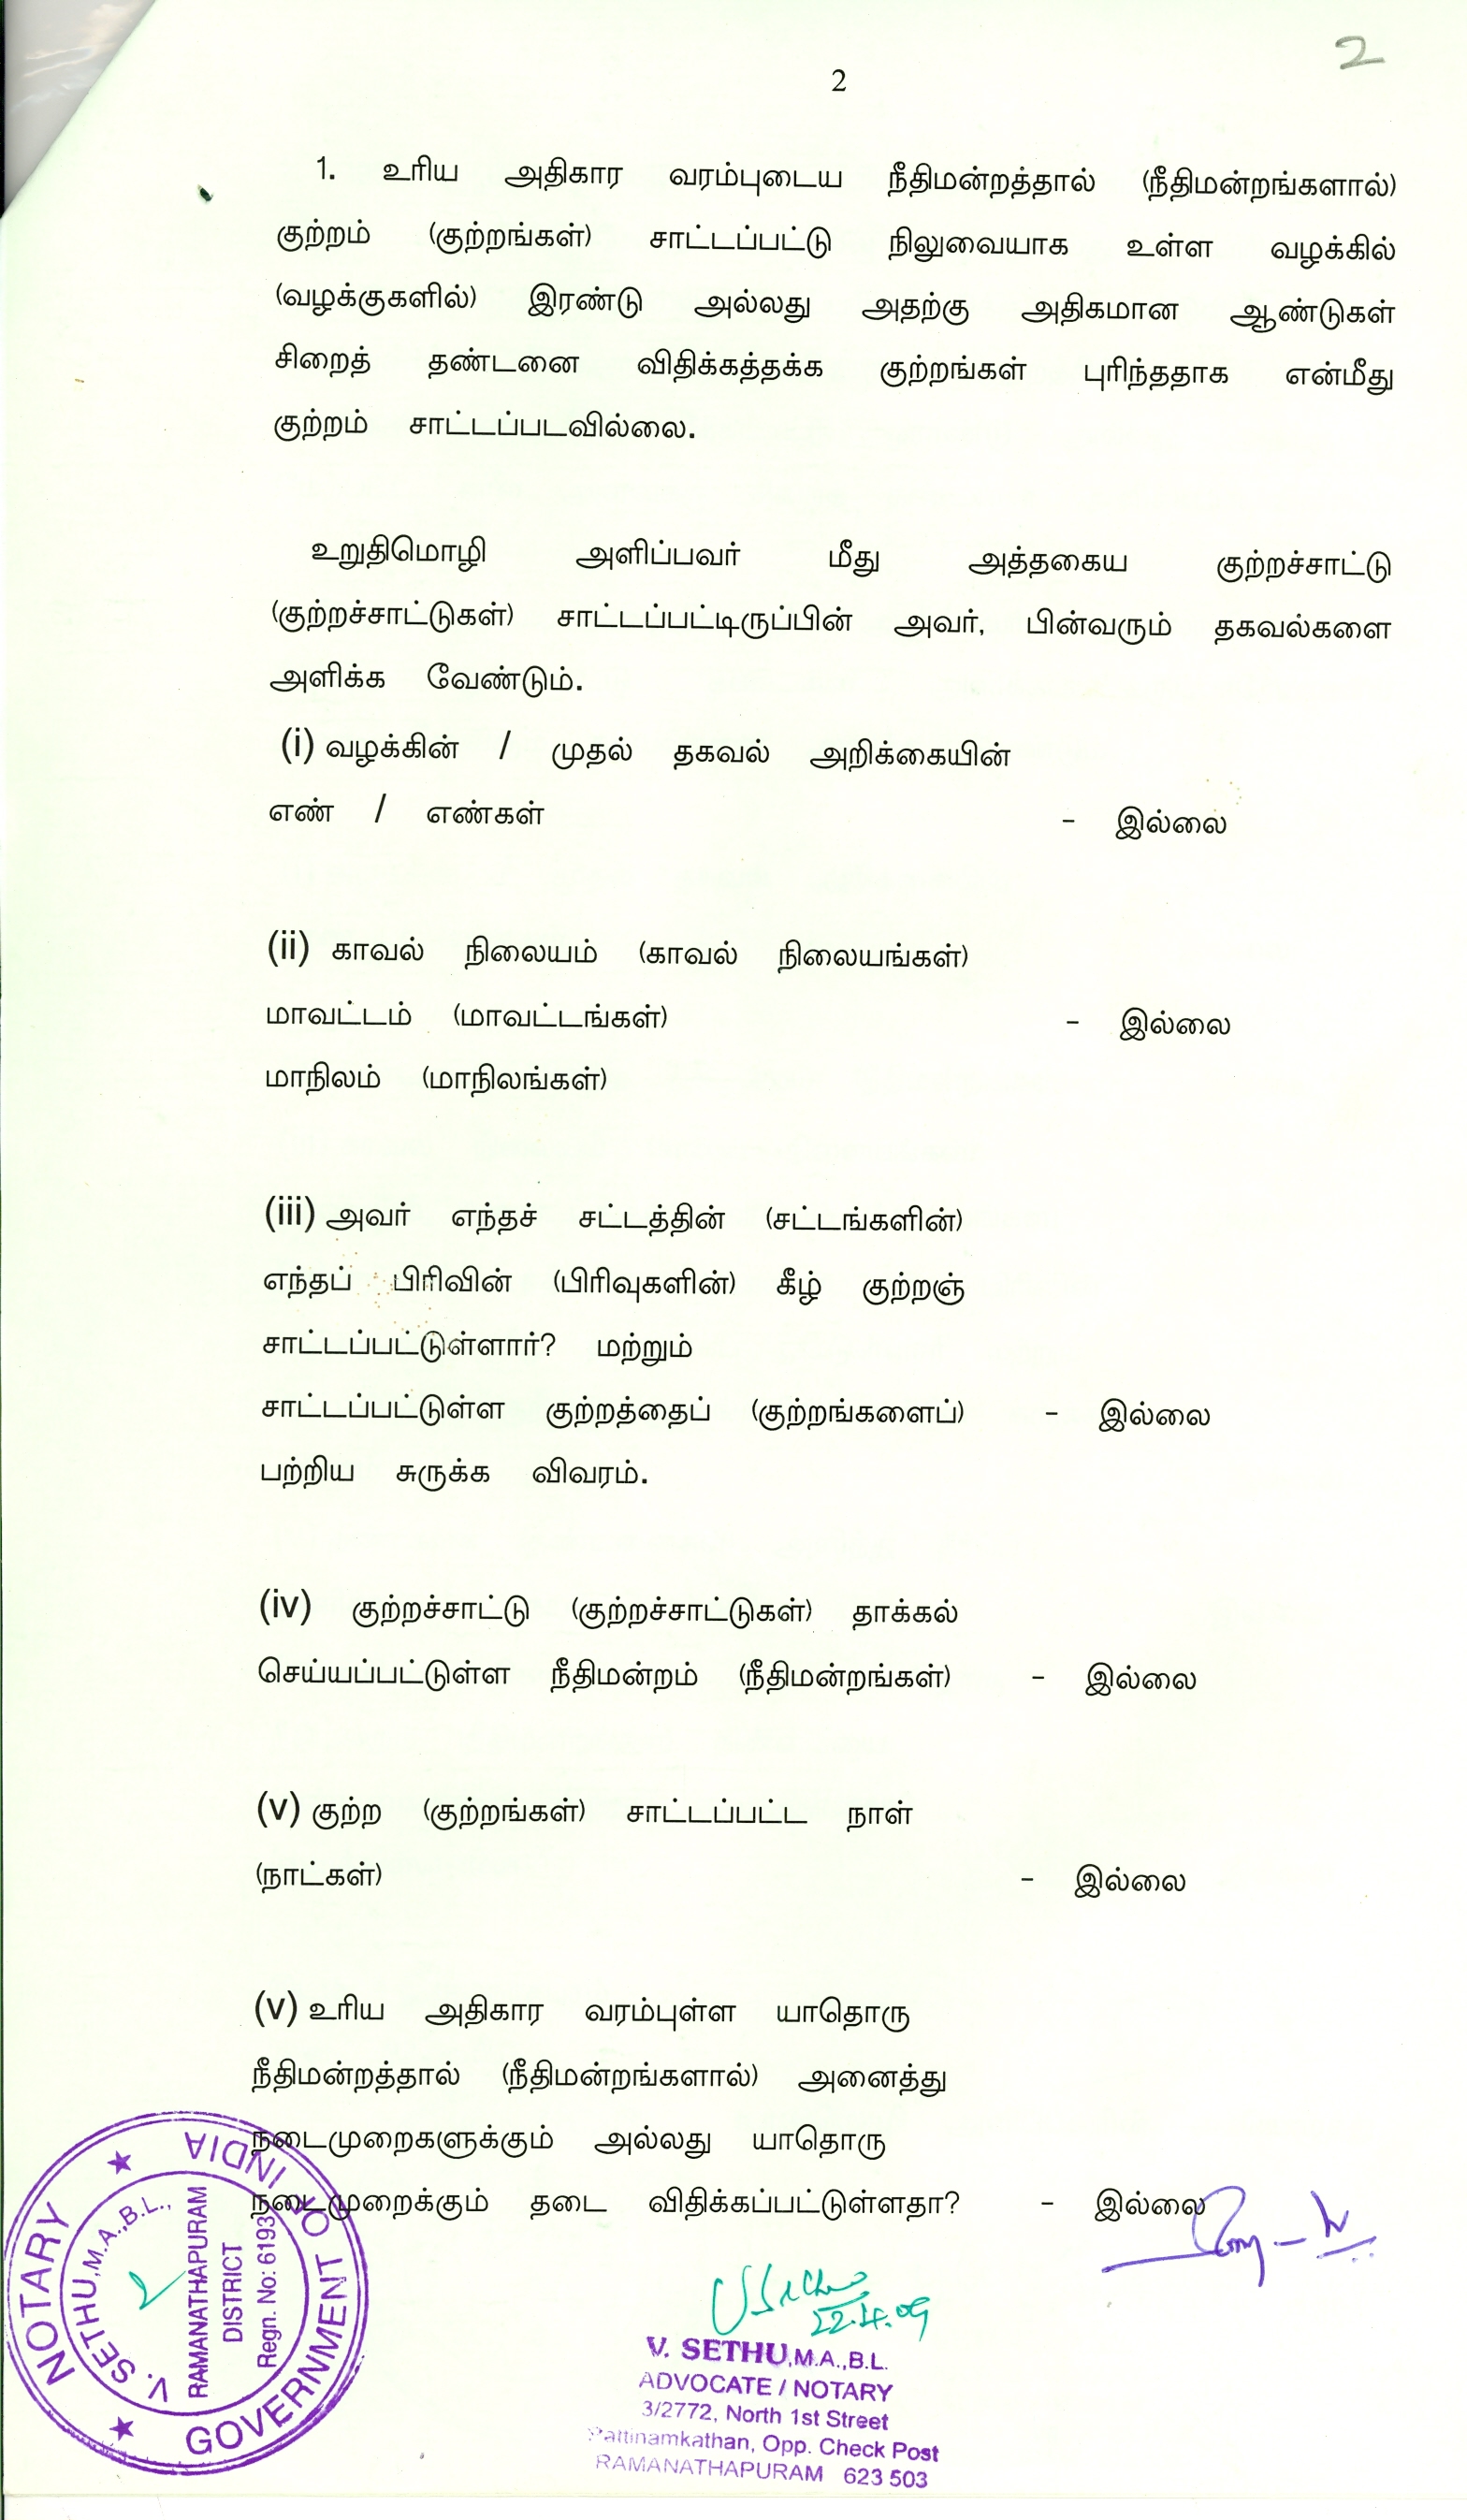 2
2
1. உரிய அதிகார வரம்புடைய நீதிமன்றத்தால் (நீதிமன்றங்களால்)
குற்றம் (குற்றங்கள்) சாட்டப்பட்டு நிலுவையாக உள்ள வழக்கில்
(வழக்குகளில்) இரண்டு அல்லது அதற்கு அதிகமான ஆண்டுகள்
சிறைத் தண்டனை விதிக்கத்தக்க குற்றங்கள் புரிந்ததாக என்மீது
குற்றம் சாட்டப்படவில்லை.
உறுதிமொழி அளிப்பவர் மீது அத்தகைய குற்றச்சாட்டு
(குற்றச்சாட்டுகள்) சாட்டப்பட்டிருப்பின் அவர், பின்வரும் தகவல்களை
அளிக்க வேண்டும்.
(i) வழக்கின் / முதல் தகவல் அறிக்கையின்
எண் / எண்கள் - இல்லை
(ii) காவல் நிலையம் (காவல் நிலையங்கள்)
மாவட்டம் (மாவட்டங்கள்) - இல்லை
மாநிலம் (மாநிலங்கள்)
(iii) அவர் எந்தச் சட்டத்தின் (சட்டங்களின்)
எந்தப் பிரிவின் (பிரிவுகளின்) கீழ் குற்றஞ்
சாட்டப்பட்டுள்ளார்? மற்றும்
சாட்டப்பட்டுள்ள குற்றத்தைப் (குற்றங்களைப்) - இல்லை
பற்றிய சுருக்க விவரம்.
(iv) குற்றச்சாட்டு (குற்றச்சாட்டுகள்) தாக்கல்
செய்யப்பட்டுள்ள நீதிமன்றம் (நீதிமன்றங்கள்) - இல்லை
(v) குற்ற (குற்றங்கள்) சாட்டப்பட்ட நாள்
(நாட்கள்) - இல்லை
(v) உரிய அதிகார வரம்புள்ள யாதொரு
நீதிமன்றத்தால் (நீதிமன்றங்களால்) அனைத்து
நடைமுறைகளுக்கும் அல்லது யாதொரு
நடைமுறைக்கும் தடை விதிக்கப்பட்டுள்ளதா? - இல்லை
NOTARY ★ GOVERNMENT OF INDIA ★
V. SETHU,M.A.,B.L.,
RAMANATHAPURAM
DISTRICT
Regn. No: 6193
22.4.09
V. SETHU,M.A.,B.L.
ADVOCATE / NOTARY
3/2772, North 1st Street
Pattinamkathan, Opp. Check Post
RAMANATHAPURAM 623 503